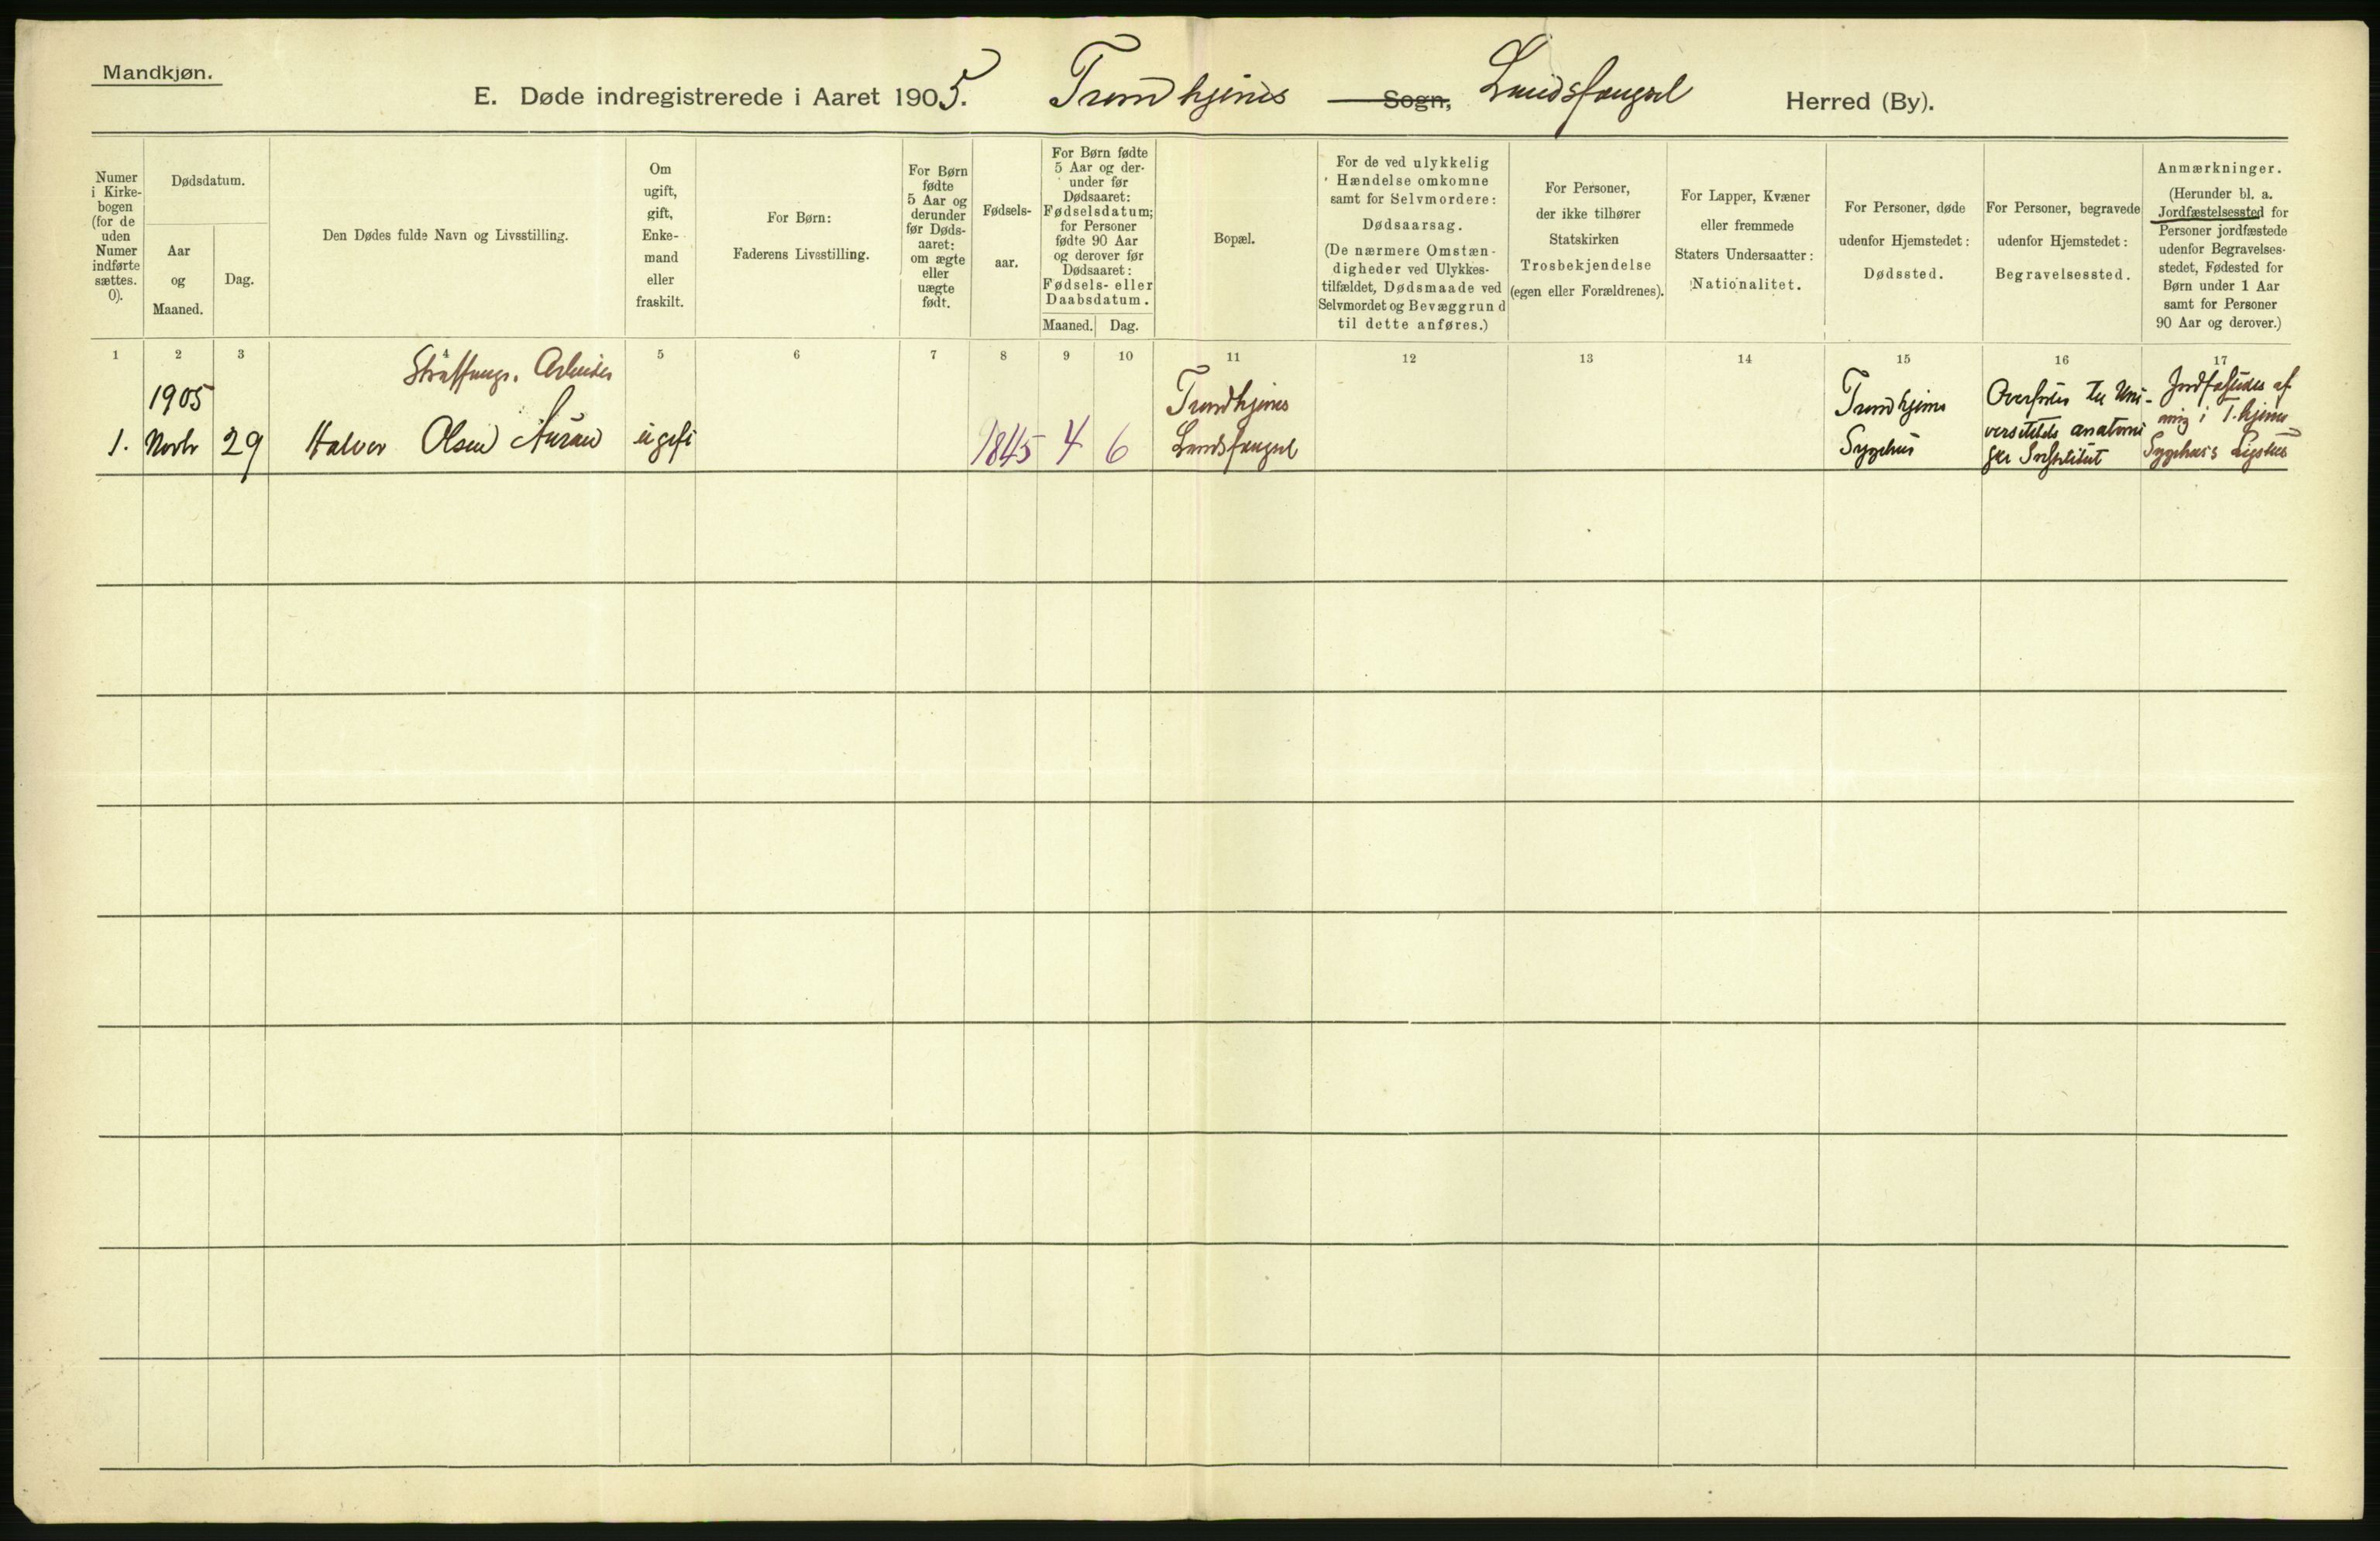 Mandkjøn.
E. Døde indregistrerede i Aaret 1905. Trondhjems Sogn, Landsfængsel Herred (By).
Numer
i Kirke-
bogen
(for de
uden
Numer
indførte
sættes.
0).
Dødsdatum.
Aar
og
Maaned.
Dag.
Den Dødes fulde Navn og Livsstilling.
Om
ugift,
gift,
Enke-
mand
eller
fraskilt.
For Børn:
Faderens Livsstilling.
For Børn
fødte
5 Aar og
derunder
før Døds-
aaret:
om ægte
eller
uægte
født.
Fødsels-
aar.
For Børn fødte
5 Aar og der-
under før
Dødsaaret:
Fødselsdatum;
for Personer
fødte 90 Aar
og derover før
Dødsaaret:
Fødsels- eller
Daabsdatum.
Maaned. Dag.
Bopæl.
For de ved ulykkelig
Hændelse omkomne
samt for Selvmordere:
Dødsaarsag.
(De nærmere Omstæn-
digheder ved Ulykkes-
tilfældet, Dødsmaade ved
Selvmordet og Bevæggrund
til dette anføres.)
For Personer,
der ikke tilhører
Statskirken
Trosbekjendelse
(egen eller Forældrenes).
For Lapper, Kvæner
eller fremmede
Staters Undersaatter:
Nationalitet.
For Personer, døde
udenfor Hjemstedet:
Dødssted.
For Personer, begravede
udenfor Hjemstedet:
Begravelsessted.
Anmærkninger.
(Herunder bl. a.
Jordfæstelsessted for
Personer jordfæstede
udenfor Begravelses-
stedet, Fødested for
Børn under 1 Aar
samt for Personer
90 Aar og derover.)
1 2 3 4 5 6 7 8 9 10 11 12 13 14 15 16 17
Straffange. Arbeider
1905
1. Novbr 29 Halvor Olsen Auran ugift 1845 4 6
Trondhjems
Landsfængsel
Trondhjems
Sygehus
Overføres til Uni-
versitetets anatomi
ske Institut
i T.hjems
Sygehus's Lighus